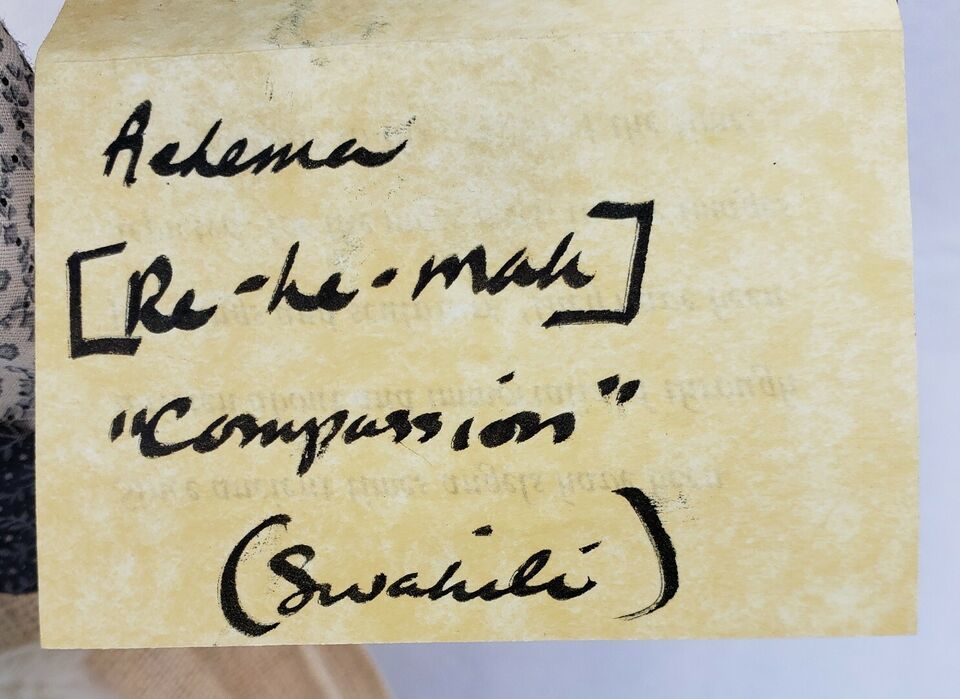 Rehema
[Re-he-mah]
"Compassion"
(Swahili)